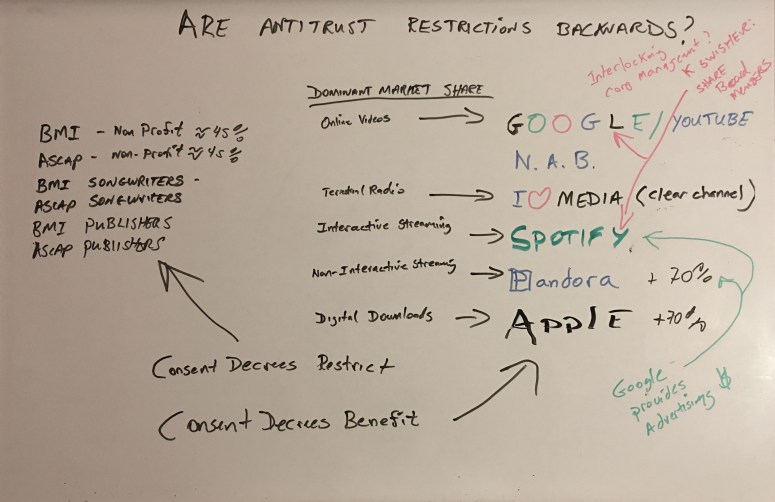 ARE ANTITRUST RESTRICTIONS BACKWARDS?
Interlocking
corp management?
K SWISHER:
SHARE
Board
Members
DOMINANT MARKET SHARE
BMI - Non Profit ≈ 45%
ASCAP - Non-Profit ≈ 45%
BMI SONGWRITERS -
ASCAP SONGWRITERS
BMI PUBLISHERS
ASCAP PUBLISHERS
Online Videos → GOOGLE/YOUTUBE
N.A.B.
→ I♡MEDIA (clear channel)
Interactive Streaming → SPOTIFY
Non-Interactive Streamg → Pandora +70%
Digital Downloads → APPLE +70%
Consent Decrees Restrict
Consent Decrees Benefit
Google
provides
Advertising $